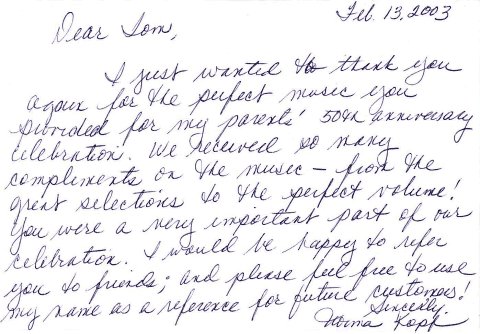 Feb. 13, 2003
Dear Tom,
I just wanted to thank you
again for the perfect music you
provided for my parents' 50th anniversary
celebration. We received so many
compliments on the music – from the
great selections to the perfect volume!
You were a very important part of our
celebration. I would be happy to refer
you to friends; and please feel free to use
my name as a reference for future customers!
Sincerely,
Norma Kopf